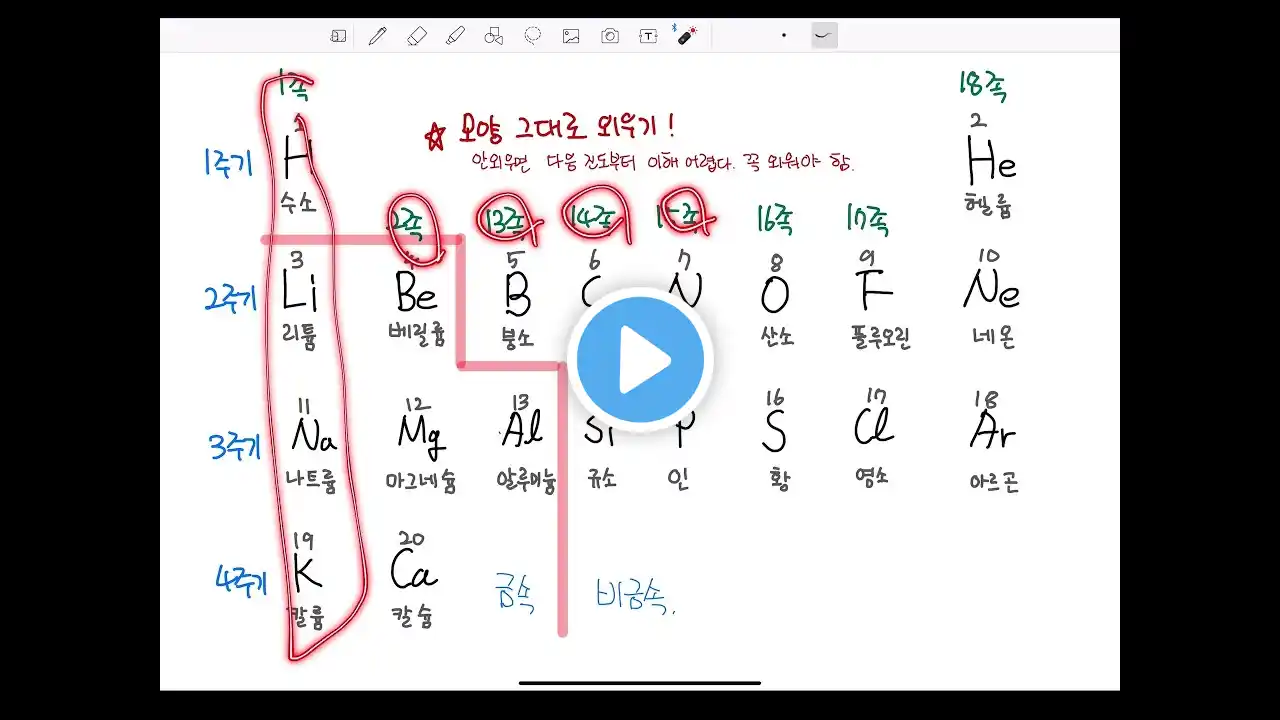 1족 18족
☆ 모양 그대로 외우기!
안외우면 다음 진도부터 이해 어렵다. 꼭 외워야 함.
1주기 H 2 He
수소 헬륨
2족 13족 14족 16족 17족
3 4 5 6 7 8 9 10
2주기 Li Be B C N O F Ne
리튬 베릴륨 붕소 산소 플루오린 네온
11 12 13 16 17 18
3주기 Na Mg Al Si P S Cl Ar
나트륨 마그네슘 알루미늄 규소 인 황 염소 아르곤
19 20
4주기 K Ca 금속 비금속.
칼륨 칼슘